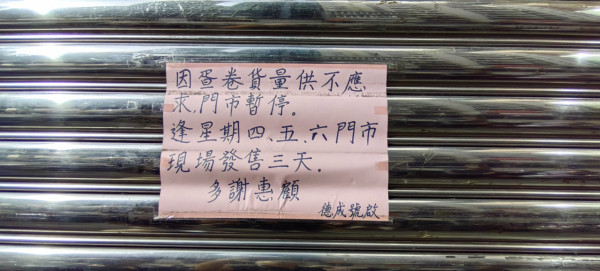 因蛋卷貨量供不應
求,門市暫停。
逢星期四、五、六門市
現場發售三天.
多謝惠顧
德成號啟